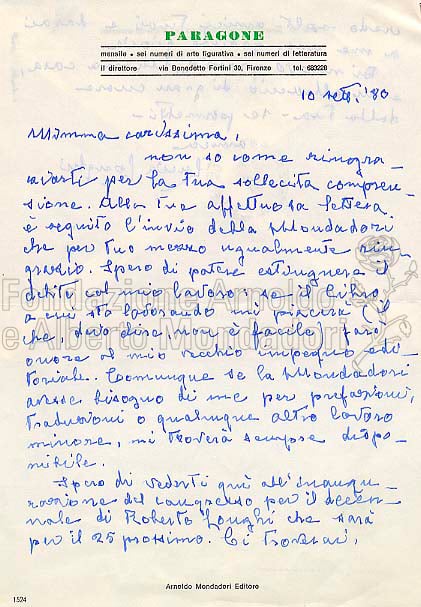 PARAGONE
mensile • sei numeri di arte figurativa • sei numeri di letteratura
il direttore via Benedetto Fortini 30, Firenze tel. 683228
10 sett. '80
Mimma carissima,
non so come ringra-
ziarti per la tua sollecita compren-
sione. Alla tua affettuosa lettera
è seguito l'invio della Mondadori
che per tuo mezzo ugualmente rin-
grazio. Spero di potere estinguere il
debito col mio lavoro: se il libro
a cui sto lavorando mi piacerà (il
che, devo dire, non è facile) farò
onore al mio vecchio impegno edi-
toriale. Comunque se la Mondadori
avesse bisogno di me per prefazioni,
traduzioni o qualunque altro lavoro
minore, mi troverà sempre dispo-
nibile.
Spero di vederti qui all'inaugu-
razione del congresso per il decen-
nale di Roberto Longhi che sarà
per il 25 prossimo. Ci troverai,
Fondazione Arnoldo
e Alberto Mondadori
Arnoldo Mondadori Editore
1524